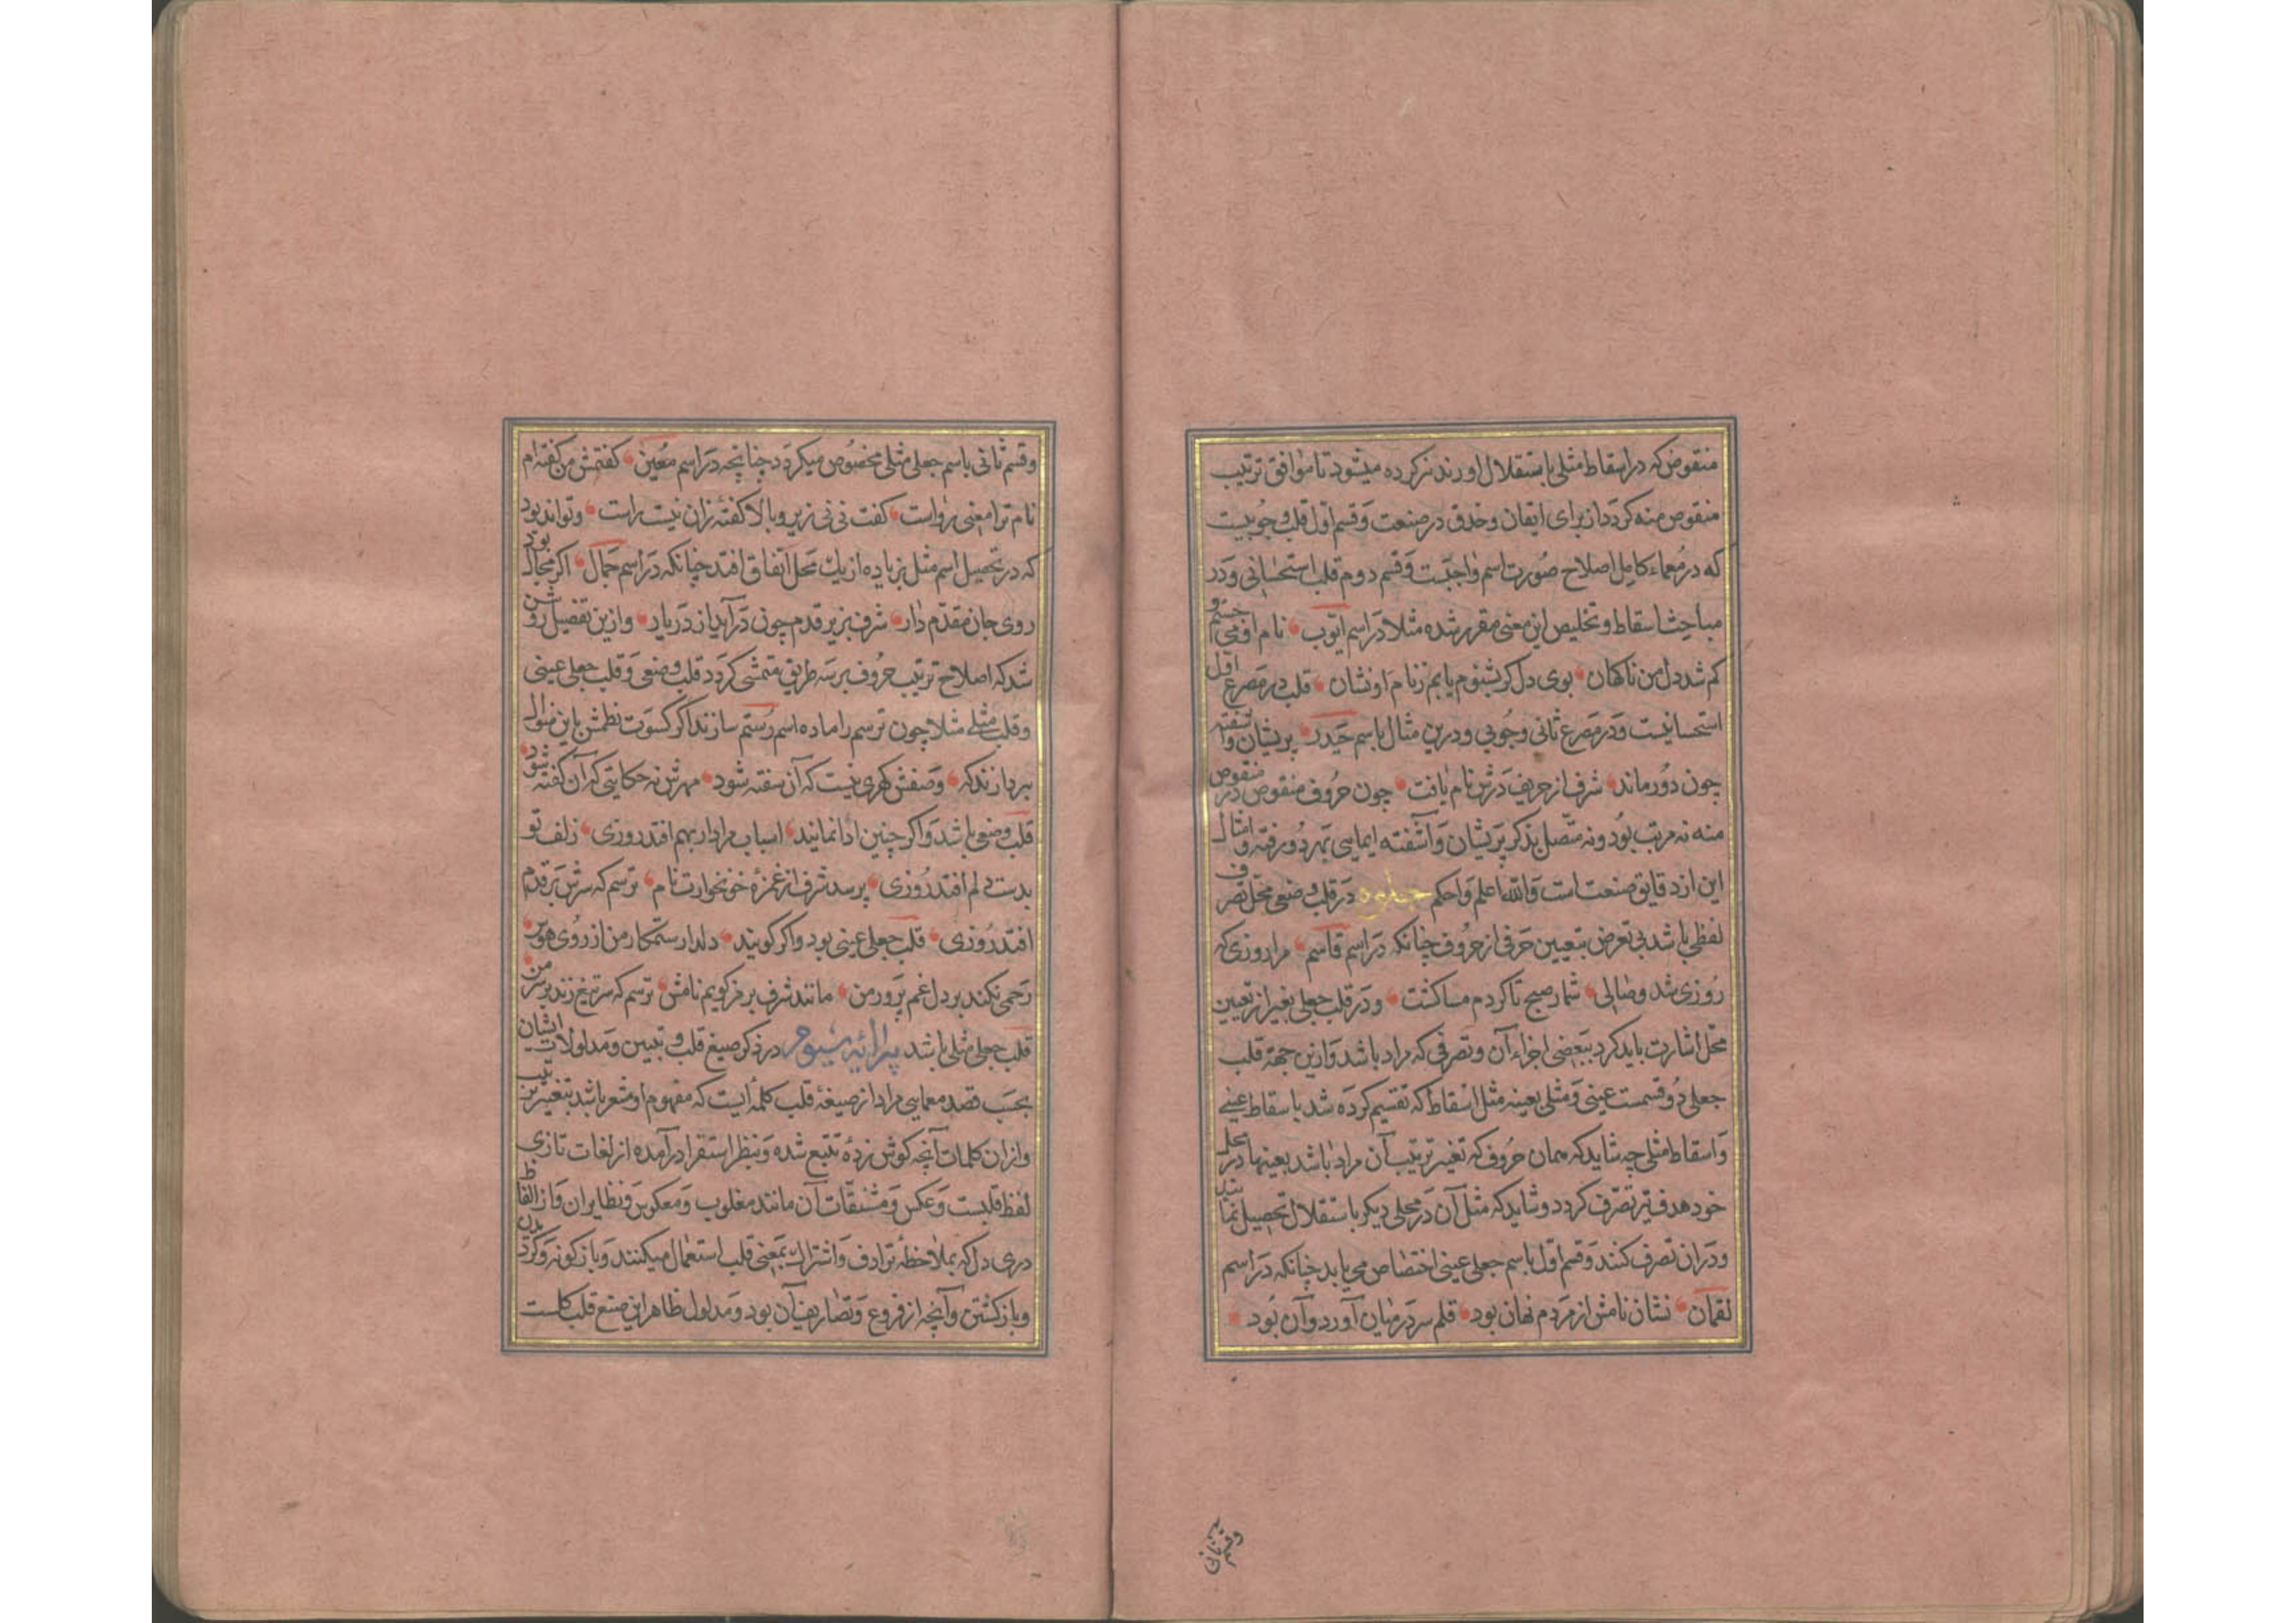 منقوض که در اسقاط مثلی باستقلال اورند نزکرده میشود تا موافق ترتیب
منقوص منه کردد از برای اتقان وحذق در صنعت وقسم اول قلب وجوبیست
که در معماء کامل اصلاح صورت اسم واجبست وقسم دوم قلب استحسانی ودر
مباحث اسقاط وتخلیص این معنی مقرر شده مثلا در اسم ایوب نام او می جستم و
کم شد دل من ناکهان بوی دل کر شنوم یابم ز نام او نشان قلب در مصرع اول
استحسانیست ودر مصرع ثانی وجوبی ودرین مثال باسم حیدر پریشان وآشفته
چون دور ماند شرف از حریف درش نام یافت چون حروف منقوص در منقوص
منه نه مرتب بود ونه متصل بذکر پریشان وآشفته ایمایی بهر دو رفته وامثال
این از دقایق صنعت است والله اعلم واحکم جلوه در قلب وضعی محل تصرف
لفظی باشد بی تعرض بتعیین حرفی از حروف چنانکه در اسم قاسم مرا روزی که
روزی شد وصالی شمار صبح تا کردم مسا کشت ودر قلب جعلی بغیر از تعیین
محل اشارت باید کرد ببعضی اجزاء آن وتصرفی که مراد باشد وازین جهة قلب
جعلی دو قسمست عینی ومثلی بعینه مثل اسقاط که تقسیم کرده شد باسقاط عینی
واسقاط مثلی چه شاید که همان حروف که تغیر ترتیب آن مراد باشد بعینها در محل
خود هدف تیر تصرف کردد وشاید که مثل آن در محلی دیکر باستقلال تحصیل نمایند
ودران تصرف کنند وقسم اول باسم جعلی عینی اختصاص می یابد چنانکه در اسم
لقمان نشان نامش از مردم نهان بود قلم سر در میان آورد وآن بود
وقسم ثانی
وقسم ثانی باسم جعلی مثلی مخصوص میکردد چنانچه در اسم معین کفتمش من کفته ام
نام ترا معنی رواست کفت نی نی زیر وبالا کفتهٔ زان نیست راست وتواند بود
که در تحصیل اسم مثل بزیاده از یک محل اتفاق افتد چنانکه در اسم جمال اکر مجال بود
روی جان مقدم دار شرف بزیر قدم چون درآید از در یار وازین تفصیل روشن
شد که اصلاح ترتیب حروف بر سه طریق متمشی کردد قلب وضعی وقلب جعلی عینی
وقلب مثلی مثلا چون ترسم را ماده اسم رستم سازند اکر کسوت نظمش باین منوال
بردازند که وصفش کهری نیست که آن سفته شود مهرش نه حکایتی که آن کفته شود
قلب وضعی باشد واکر چنین ادا نمایند اسباب مرادار بهم افتد روزی زلف تو
بدست دلم افتد روزی پرسد شرف از غمزهٔ خونخوارت نام ترسم که سرش بر قدم
افتد روزی قلب جعلی عینی بود واکر کویند دلدار ستمکار من از روی هوس
رحمی نکند بر دل غم پرور من مانند شرف برمز کویم نامش ترسم که سر تیغ زند بر سر من
قلب جعلی مثلی باشد پیرائه سیوم در ذکر صیغ قلب وتبیین ومدلولات ایشان
بحسب قصد معمایی مراد از صیغهٔ قلب کلمهٔ ایست که مفهوم او مشعر باشد بتغیر ترتیب
وازان کلمات آنچه کوش زدهٔ تتبع شده وبنظر استقرا درآمده از لغات تازی
لفظ قلبست وعکس ومشتقات آن مانند مقلوب ومعکوس ونظایر ان واز الفاظ
دری دل که بملاحظهٔ ترادف واشتراک بمعنی قلب استعمال میکنند وبازکونه وکردیدن
وبازکشتن وآنچه از فروع وتصاریف آن بود ومدلول ظاهر این صیغ قلب کلست